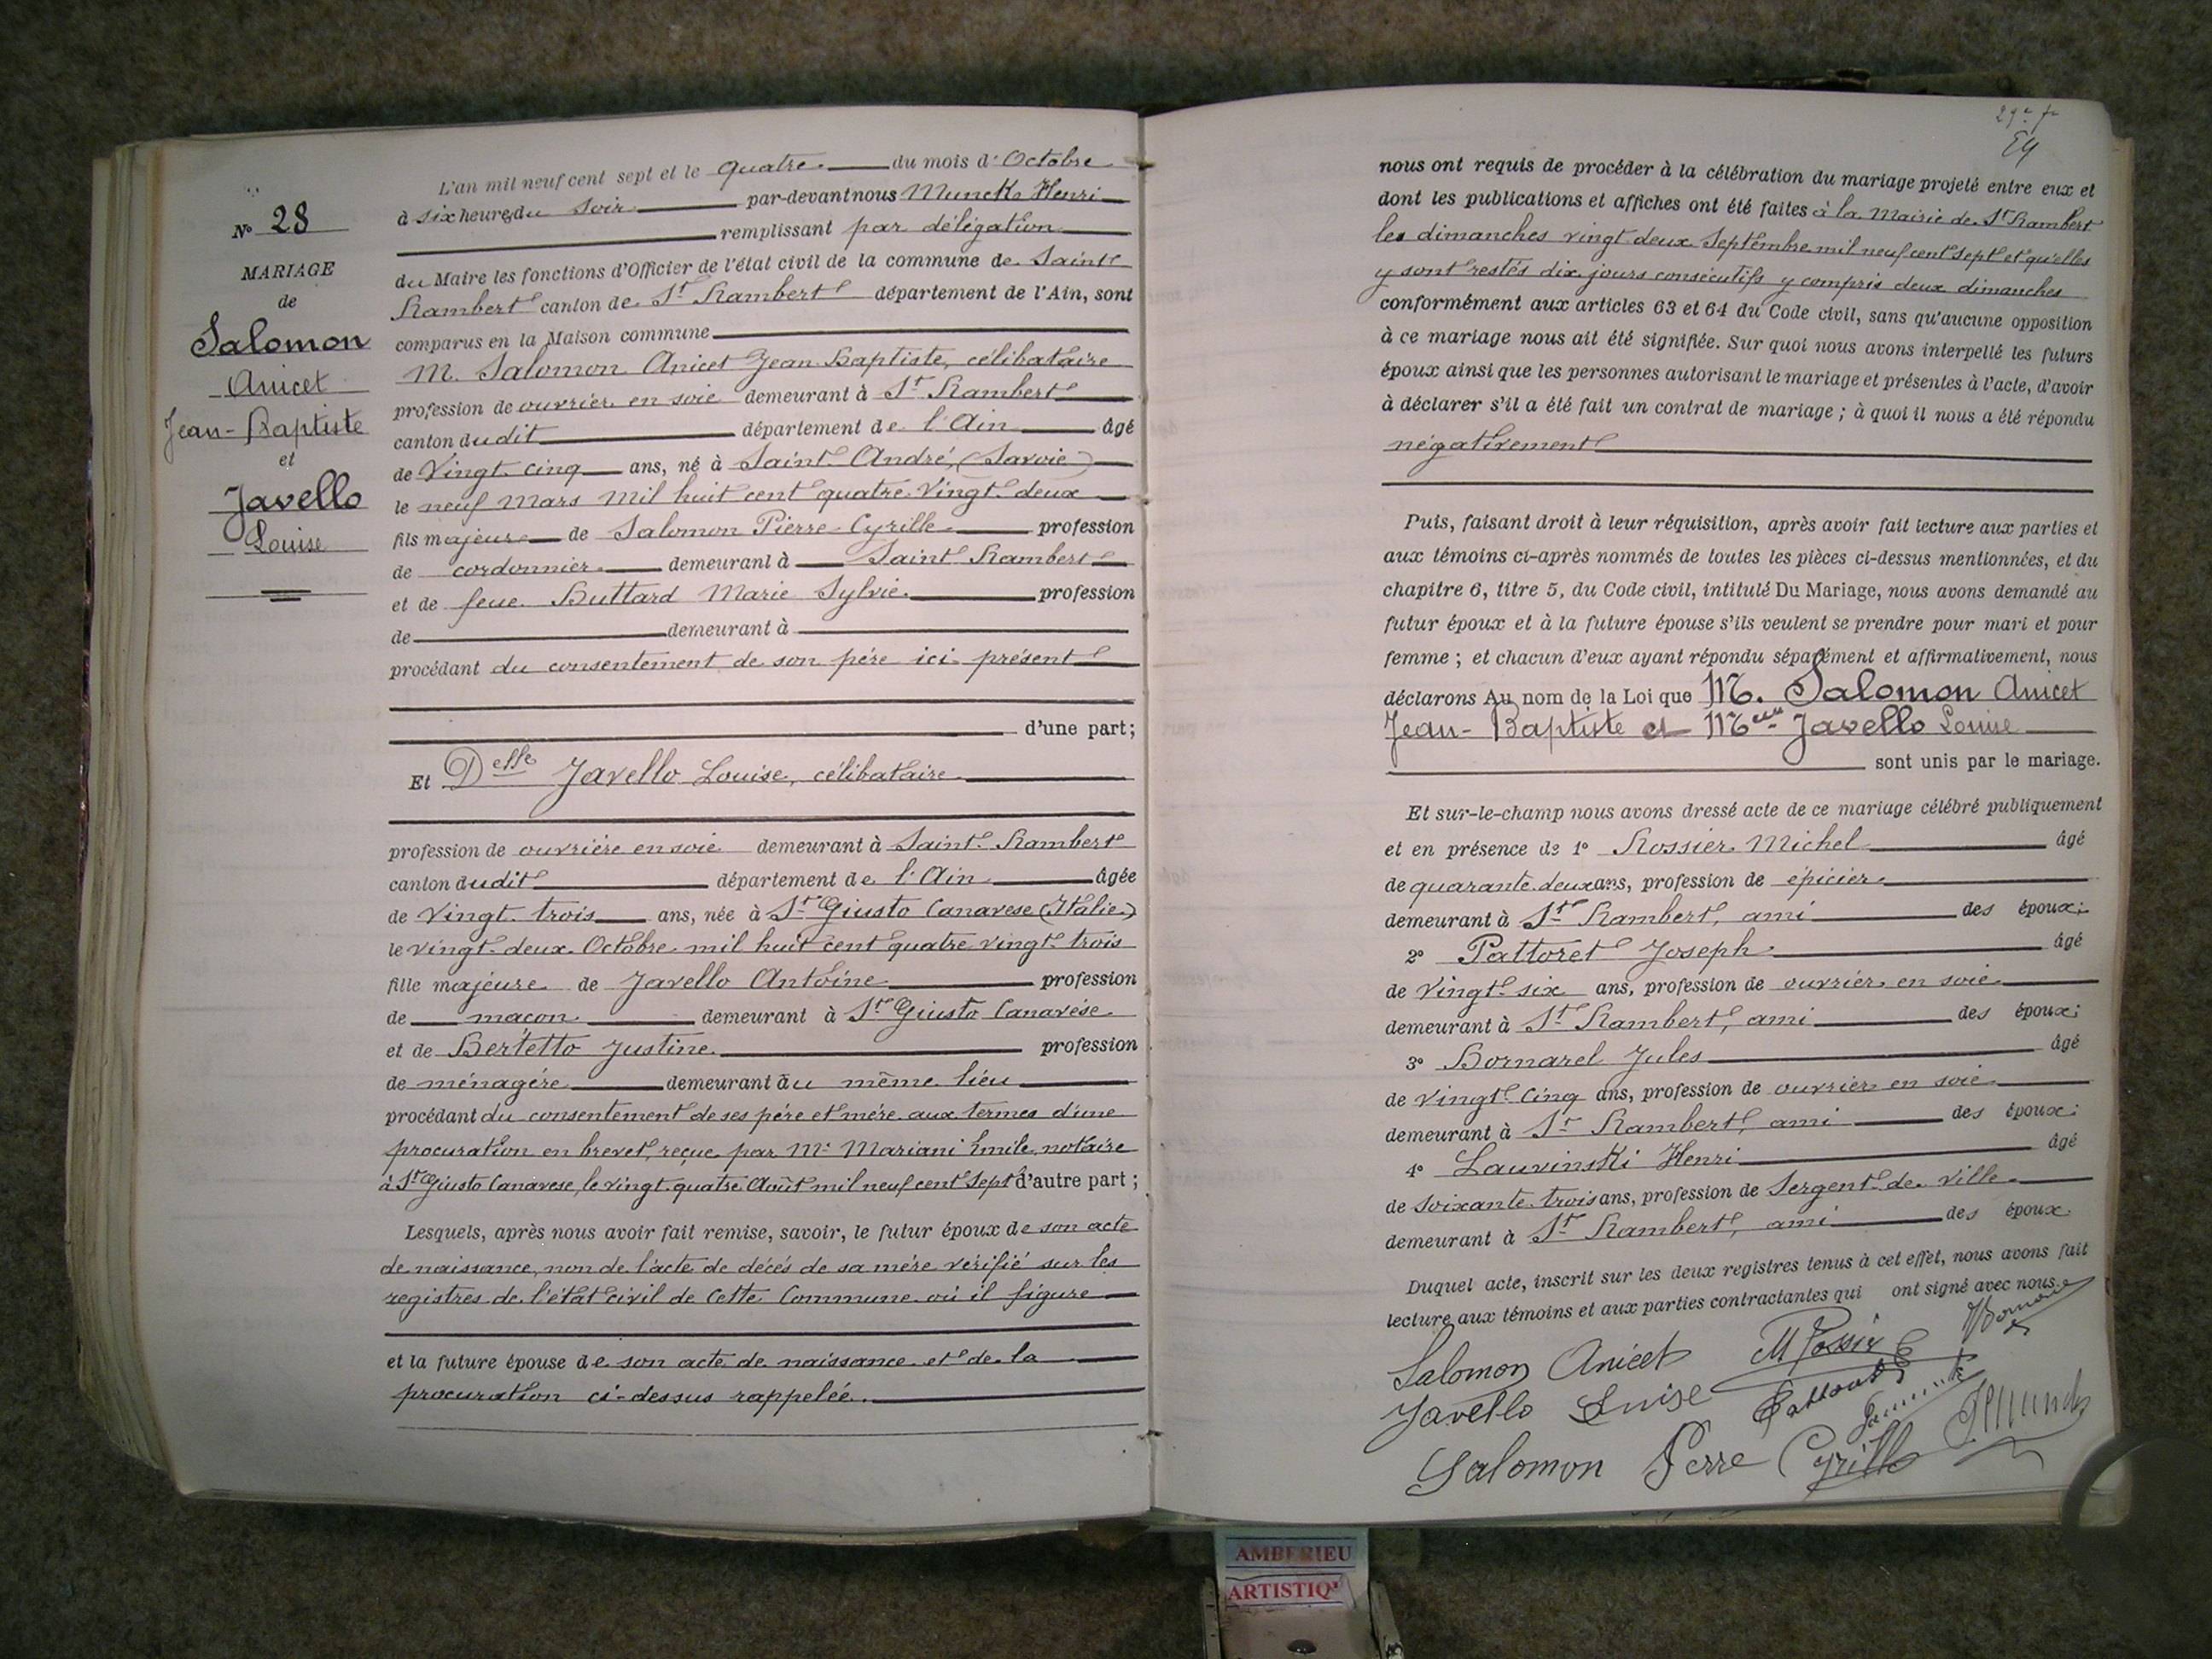 Nº 28
MARIAGE
de
Salomon
Anicet
Jean-Baptiste
et
Javello
Louise
L'an mil neuf cent sept et le quatre du mois d'Octobre
à six heures du soir par-devant nous Munck Henri
remplissant par délégation
du Maire les fonctions d'Officier de l'état civil de la commune de Saint
Rambert canton de St Rambert département de l'Ain, sont
comparus en la Maison commune
M. Salomon Anicet Jean Baptiste, célibataire
profession de ouvrier en soie demeurant à St Rambert
canton dudit département de l'Ain âgé
de Vingt cinq ans, né à Saint André, (Savoie)
le neuf Mars mil huit cent quatre Vingt deux
fils majeur de Salomon Pierre Cyrille profession
de cordonnier demeurant à Saint Rambert
et de feue Buttard Marie Sylvie profession
de demeurant à
procédant du consentement de son père ici présent
d'une part;
Et Delle Javello Louise, célibataire
profession de ouvrière en soie demeurant à Saint Rambert
canton dudit département de l'Ain âgée
de Vingt trois ans, née à St Giusto Canavese (Italie)
le vingt deux Octobre mil huit cent quatre vingt trois
fille majeure de Javello Antoine profession
de maçon demeurant à St Giusto Canavèse
et de Bertetto Justine profession
de ménagère demeurant au même lieu
procédant du consentement de ses père et mère aux termes d'une
procuration en brevet, reçue par Me Mariani Emile, notaire
à St Giusto Canavese, le vingt quatre Août mil neuf cent sept d'autre part;
Lesquels, après nous avoir fait remise, savoir, le futur époux de son acte
de naissance, non de l'acte de décès de sa mère vérifié sur les
registres de l'état civil de cette Commune où il figure
et la future épouse de son acte de naissance et de la
procuration ci-dessus rappelée.
29e f
nous ont requis de procéder à la célébration du mariage projeté entre eux et
dont les publications et affiches ont été faites à la Mairie de St Rambert
les dimanches vingt deux Septembre mil neuf cent sept et qu'elles
y sont restés dix jours consécutifs y compris deux dimanches
conformément aux articles 63 et 64 du Code civil, sans qu'aucune opposition
à ce mariage nous ait été signifiée. Sur quoi nous avons interpellé les futurs
époux ainsi que les personnes autorisant le mariage et présentes à l'acte, d'avoir
à déclarer s'il a été fait un contrat de mariage; à quoi il nous a été répondu
négativement
Puis, faisant droit à leur réquisition, après avoir fait lecture aux parties et
aux témoins ci-après nommés de toutes les pièces ci-dessus mentionnées, et du
chapitre 6, titre 5, du Code civil, intitulé Du Mariage, nous avons demandé au
futur époux et à la future épouse s'ils veulent se prendre pour mari et pour
femme; et chacun d'eux ayant répondu séparément et affirmativement, nous
déclarons Au nom de la Loi que M. Salomon Anicet
Jean-Baptiste et Melle Javello Louise
sont unis par le mariage.
Et sur-le-champ nous avons dressé acte de ce mariage célébré publiquement
et en présence de 1º Rossier Michel âgé
de quarante deux ans, profession de épicier
demeurant à St Rambert, ami des époux;
2º Pattoret Joseph âgé
de Vingt six ans, profession de ouvrier en soie
demeurant à St Rambert, ami des époux;
3º Bornarel Jules âgé
de Vingt cinq ans, profession de ouvrier en soie
demeurant à St Rambert, ami des époux;
4º Lauvinski Henri âgé
de soixante trois ans, profession de Sergent de Ville
demeurant à St Rambert, ami des époux.
Duquel acte, inscrit sur les deux registres tenus à cet effet, nous avons fait
lecture aux témoins et aux parties contractantes qui ont signé avec nous
Salomon Anicet M Rossier
Javello Luise
Salomon Pierre Cyrille HMunck
AMBERIEU
ARTISTIQ